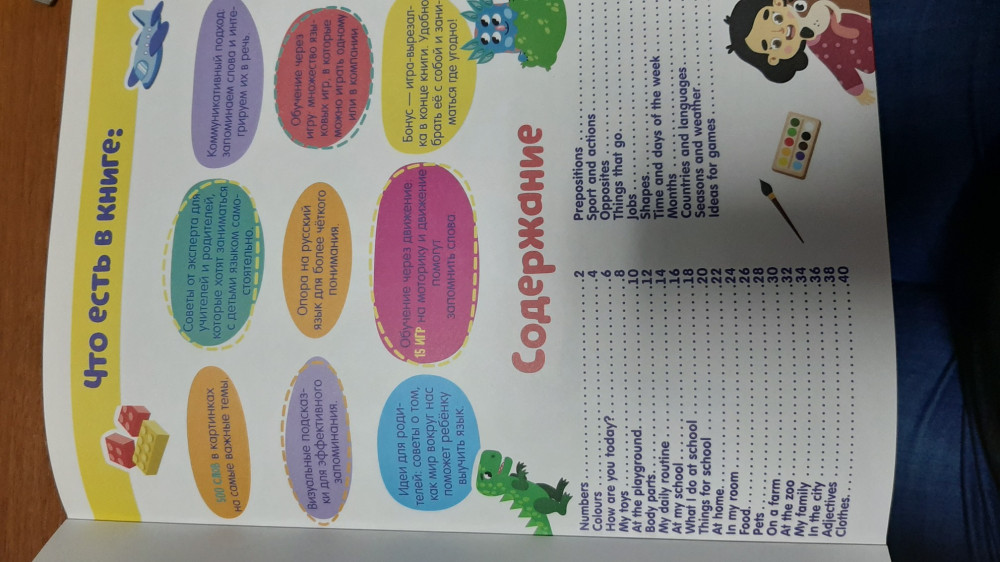 Что есть в книге:
500 слов в картинках
на самые важные темы.
Советы от эксперта для
учителей и родителей,
которые хотят заниматься
с детьми языком само-
стоятельно.
Коммуникативный подход:
запоминаем слова и инте-
грируем их в речь.
Визуальные подсказ-
ки для эффективного
запоминания.
Опора на русский
язык для более чёткого
понимания.
Обучение через
игру: множество язы-
ковых игр, в которые
можно играть одному
или в компании.
Идеи для роди-
телей: советы о том,
как мир вокруг нас
поможет ребёнку
выучить язык.
Обучение через движение:
15 ИГР на моторику и движение
помогут
запомнить слова
Бонус — игра-вырезал-
ка в конце книги. Удобно
брать её с собой и зани-
маться где угодно!
Содержание
Numbers 2
Colours 4
How are you today? 6
My toys 8
At the playground 10
Body parts 12
My daily routine 14
At my school 16
What I do at school 18
Things for school 20
At home 22
In my room 24
Food 26
Pets 28
On a farm 30
At the zoo 32
My family 34
In the city 36
Adjectives 38
Clothes 40
Prepositions
Sport and actions
Opposites
Things that go
Jobs
Shapes
Time and days of the week
Months
Countries and languages
Seasons and weather
Ideas for games